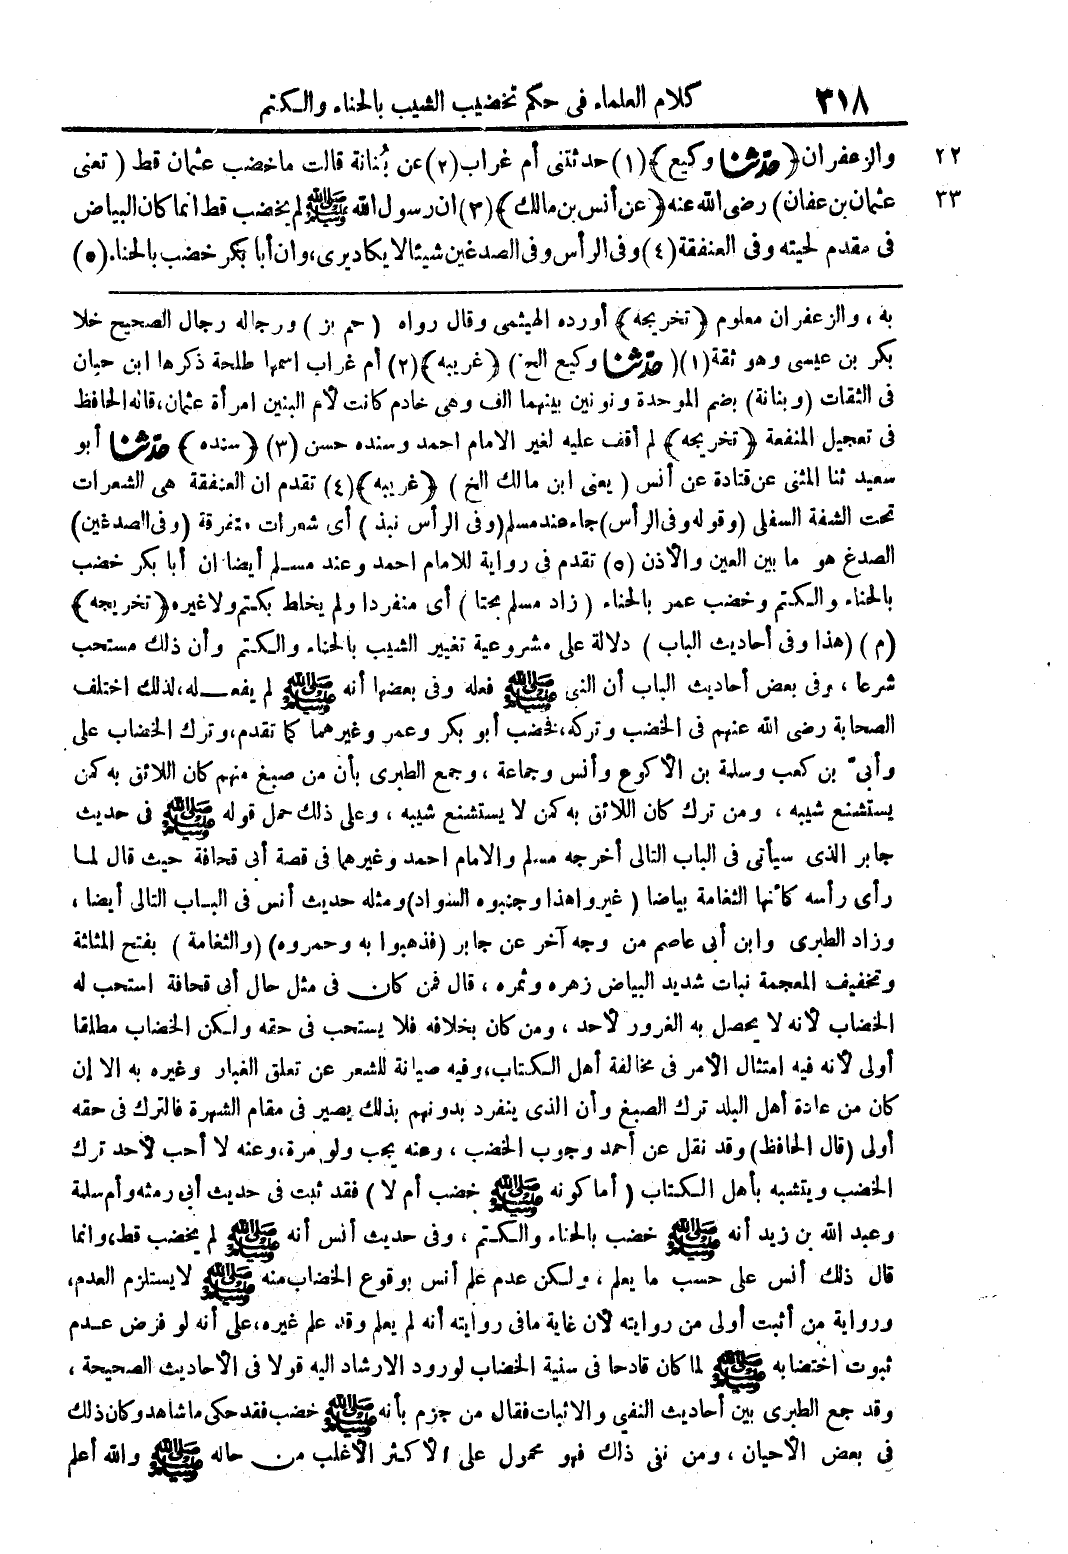 ٣١٨ كلام العلماء فى حكم تخضيب الشيب بالحناء والكتم
٢٢ والزعفران ﴿حدثنا وكيع﴾ (١) حدثتنى أم غراب (٢) عن بُنانة قالت ماخضب عثمان قط ( تعنى
٣٣ عثمان بن عفان) رضى الله عنه ﴿عن أنس بن مالك﴾ (٣) ان رسول الله ﷺ لم يخضب قط انما كان البياض
فى مقدم لحيته وفى العنفقة (٤) وفى الرأس وفى الصدغين شيئا لا يكاد يرى، وان أبا بكر خضب بالحناء. (٥)
به ، والزعفران معلوم ﴿تخريجه﴾ أورده الهيثمى وقال رواه ( حم بز ) ورجاله رجال الصحيح خلا
بكر بن عيسى وهو ثقة (١) ( حدثنا وكيع الخ ) ﴿غريبه﴾ (٢) أم غراب اسمها طلحة ذكرها ابن حبان
فى الثقات (وبنانة) بضم الموحدة ونونين بينهما الف وهى خادم كانت لأم البنين امرأة عثمان، قاله الحافظ
فى تعجيل المنفعة ﴿تخريجه﴾ لم أقف عليه لغير الامام احمد وسنده حسن (٣) ﴿سنده﴾ حدثنا أبو
سعيد ثنا المثنى عن قتادة عن أنس ( يعنى ابن مالك الخ ) ﴿غريبه﴾ (٤) تقدم ان العنفقة هى الشعرات
تحت الشفة السفلى (وقوله وفى الرأس) جاء عند مسلم (وفى الرأس نبذ ) أى شعرات متفرقة (وفى الصدغين)
الصدغ هو ما بين العين والأذن (٥) تقدم فى رواية للامام احمد وعند مسلم أيضا ان أبا بكر خضب
بالحناء والكتم وخضب عمر بالحناء ( زاد مسلم بحتا ) أى منفردا ولم يخلط بكتم ولا غيره ﴿تخريجه﴾
(م) (هذا وفى أحاديث الباب ) دلالة على مشروعية تغيير الشيب بالحناء والكتم وأن ذلك مستحب
شرعا ، وفى بعض أحاديث الباب أن النبى ﷺ فعله وفى بعضها أنه ﷺ لم يفعله، لذلك اختلف
الصحابة رضى الله عنهم فى الخضب وتركه، فخضب أبو بكر وعمر وغيرهما كما تقدم، وترك الخضاب على
وأبىّ بن كعب وسلمة بن الأكوع وأنس وجماعة ، وجمع الطبرى بأن من صبغ منهم كان اللائق به كمن
يستشنع شيبه ، ومن ترك كان اللائق به كمن لا يستشنع شيبه ، وعلى ذلك حمل قوله ﷺ فى حديث
جابر الذى سيأتى فى الباب التالى أخرجه مسلم والامام احمد وغيرهما فى قصة أبى قحافة حيث قال لما
رأى رأسه كأنها الثغامة بياضا ( غيروا هذا وجنبوه السواد) ومثله حديث أنس فى الباب التالى أيضا ،
وزاد الطبرى وابن أبى عاصم من وجه آخر عن جابر (فذهبوا به وحمروه) (والثغامة ) بفتح المثلثة
وتخفيف المعجمة نبات شديد البياض زهره وثمره ، قال فمن كان فى مثل حال أبى قحافة استحب له
الخضاب لأنه لا يحصل به الغرور لأحد ، ومن كان بخلافه فلا يستحب فى حقه ولكن الخضاب مطلقا
أولى لأنه فيه امتثال الأمر فى مخالفة أهل الكتاب، وفيه صيانة للشعر عن تعلق الغبار وغيره به الا إن
كان من عادة أهل البلد ترك الصبغ وأن الذى ينفرد بدونهم بذلك يصير فى مقام الشهرة فالترك فى حقه
أولى (قال الحافظ) وقد نقل عن أحمد وجوب الخضب ، وعنه يجب ولو مرة، وعنه لا أحب لأحد ترك
الخضب ويتشبه بأهل الكتاب ( أما كونه ﷺ خضب أم لا ) فقد ثبت فى حديث أبى رمثه وأم سلمة
وعبد الله بن زيد أنه ﷺ خضب بالحناء والكتم ، وفى حديث أنس أنه ﷺ لم يخضب قط، وانما
قال ذلك أنس على حسب ما يعلم ، ولكن عدم علم أنس بوقوع الخضاب منه ﷺ لا يستلزم العدم،
ورواية من أثبت أولى من روايته لأن غاية مافى روايته أنه لم يعلم وقد علم غيره، على أنه لو فرض عدم
ثبوت اختضابه ﷺ لما كان قادحا فى سنية الخضاب لورود الارشاد اليه قولا فى الأحاديث الصحيحة ،
وقد جمع الطبرى بين أحاديث النفى والاثبات فقال من جزم بأنه ﷺ خضب فقد حكى ما شاهد وكان ذلك
فى بعض الأحيان ، ومن نفى ذلك فهو محمول على الأكثر الأغلب من حاله ﷺ والله أعلم